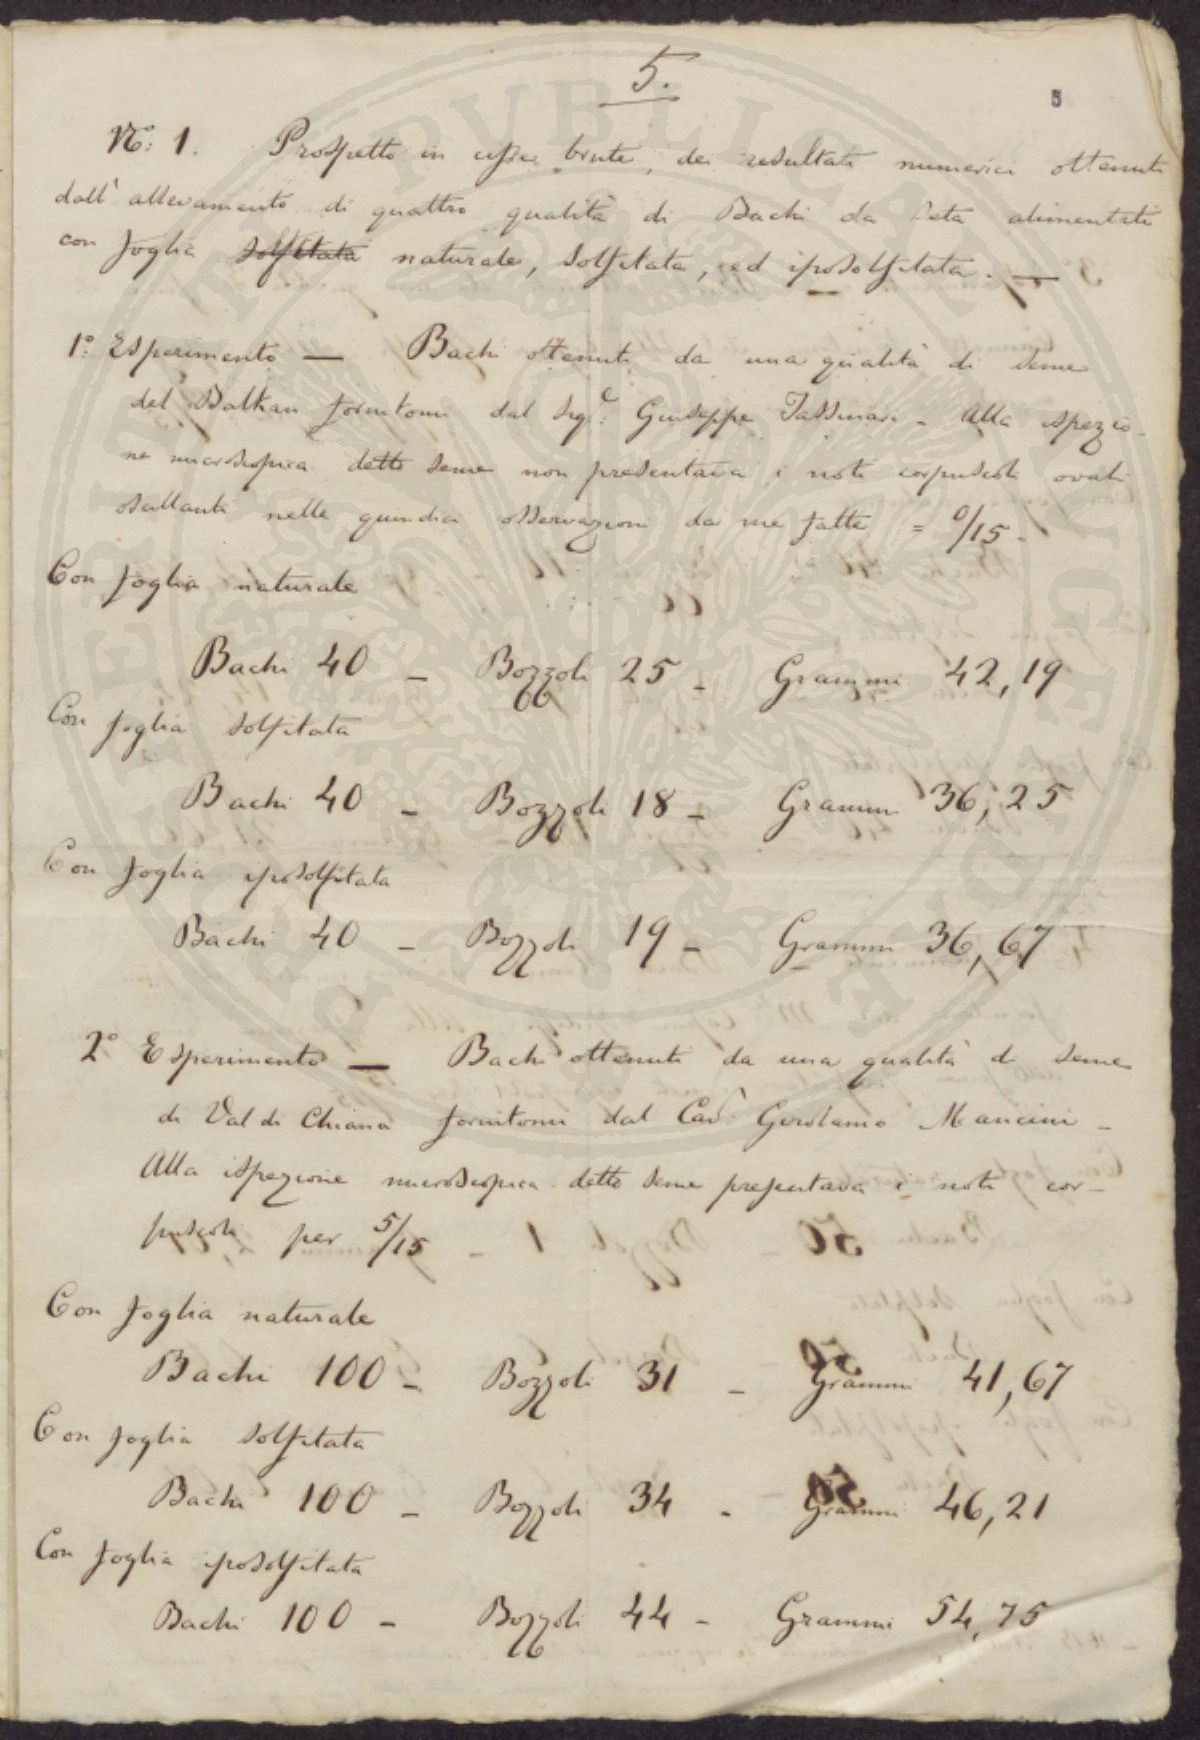 5.
5
N.° 1. Prospetto in cifre brute, dei resultati numerici ottenuti
dall' allevamento di quattro qualità di Bachi da Seta alimentati
con foglia solfitata naturale, solfitata, ed iposolfitata. —
1.° Esperimento — Bachi ottenuti da una qualità di seme
del Balkan fornitomi dal Sig.r Giuseppe Tassinari - Alla ispezio-
ne microscopica detto seme non presentava i noti corpuscoli ovali
oscillanti nelle quindici osservazioni da me fatte = 0/15 -
Con foglia naturale
Bachi 40 - Bozzoli 25 - Grammi 42,19
Con foglia solfitata
Bachi 40 - Bozzoli 18 - Grammi 36,25
Con foglia iposolfitata
Bachi 40 - Bozzoli 19 - Grammi 36,67
2° Esperimento — Bachi ottenuti da una qualità di seme
di Val di Chiana fornitomi dal Cav. Girolamo Mancini -
Alla ispezione microscopica detto seme presentava i noti cor-
puscoli per 5/15
Con foglia naturale
Bachi 100 - Bozzoli 31 - Grammi 41,67
Con foglia solfitata
Bachi 100 - Bozzoli 34 - Grammi 46,21
Con foglia iposolfitata
Bachi 100 - Bozzoli 44 - Grammi 54,75